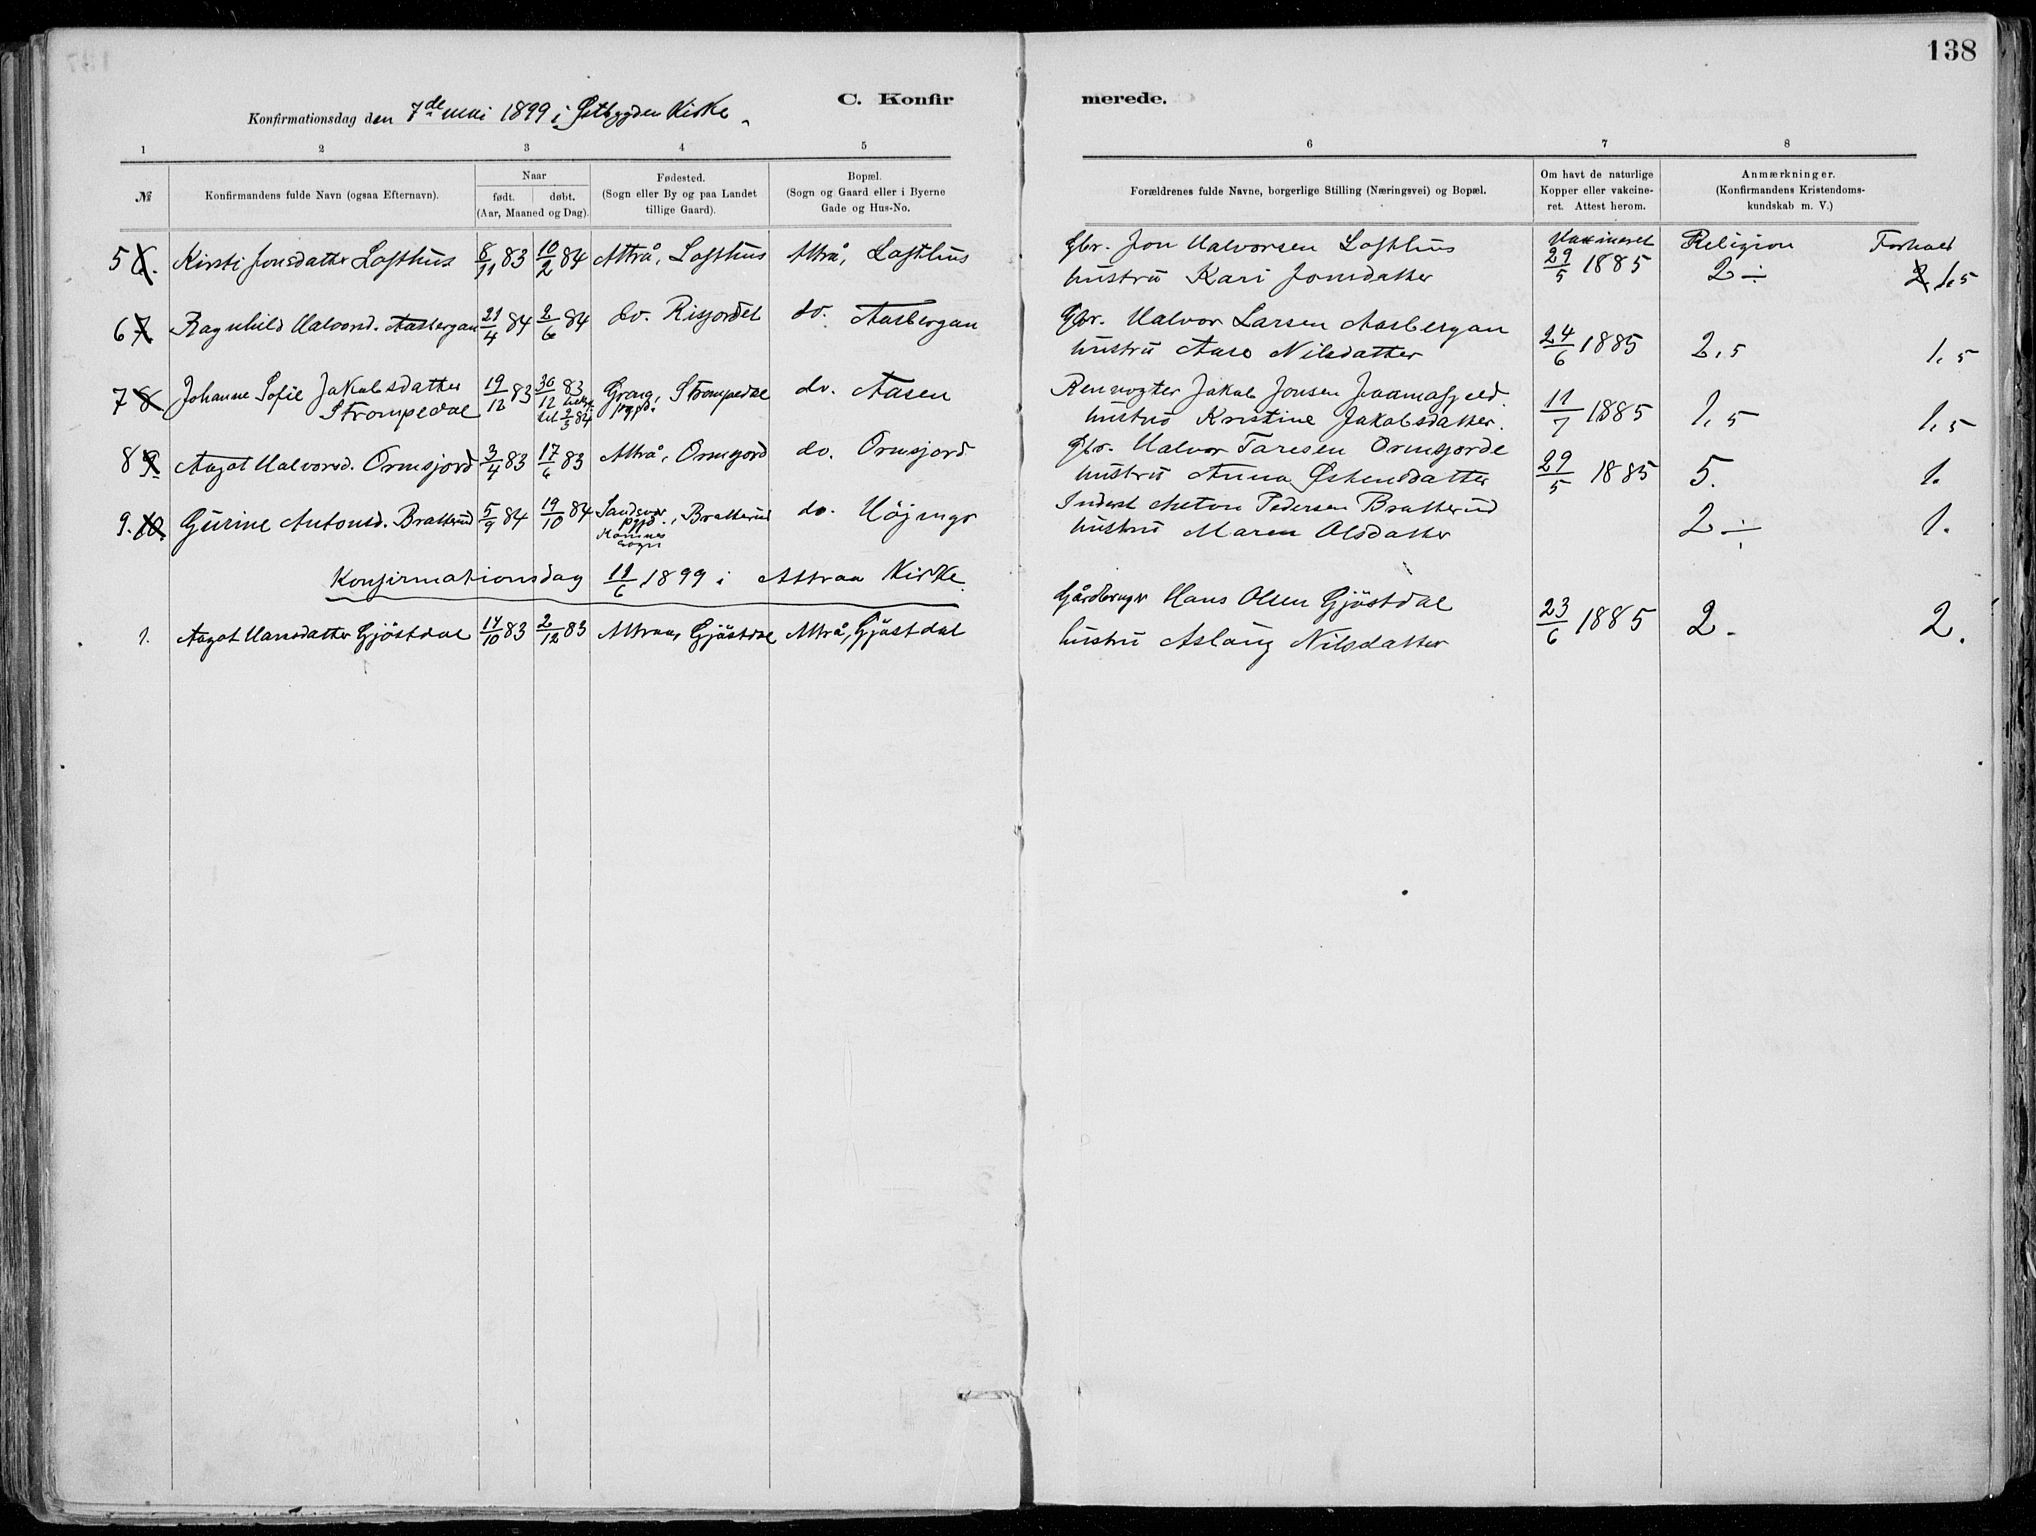 138
C. Konfirmerede.
Konfirmationsdag den 7de mai 1899 i Østbygden Kirke
1 2 3 4 5 6 7 8
№ Konfirmandens fulde Navn (ogsaa Efternavn). Naar født. døbt. (Aar, Maaned og Dag). Fødested. (Sogn eller By og paa Landet tillige Gaard). Bopæl. (Sogn og Gaard eller i Byerne Gade og Hus-No. Forældrenes fulde Navne, borgerlige Stilling (Næringsvei) og Bopæl. Om havt de naturlige Kopper eller vakcineret. Attest herom. Anmærkninger. (Konfirmandens Kristendomskundskab m. V.)
5 6. Kirsti Jonsdatter Lofthus 8/11 83 10/2 84 Attrå, Lofthus Attrå, Lofthus Gbr. Jon Halvorsen Lofthus Vaxineret Religion Forhold
hustru Kari Jonsdatter 29/5 1885 2 ÷ 2. 1.5
6 7 Ragnhild Halvorsd. Aasbergan 21/4 84 2/6 84 do. Risjordet do. Aasbergan Gbr. Halvor Larsen Aasbergan
hustru Aase Nilsdatter 24/6 1885 2,5 1,5
7 8 Johanne Sofie Jakobsdatter 19/12 83 30/12 83 Grong, Strompedae do. Aasen Renvogter Jakob Jonsen
Strompedae pgjd. hustru Kristine Jakobsdatter. 11/7 1885 1,5 1,5
8 9. Aagot Halvorsd. Ormsjord 3/4 83 17/6 83 Attrå, Ormsjord do. Ormsjord Gbr. Halvor Taresen Ormsjorde
hustru Anna Østensdatter 29/5 1885 5. 1.
9. 10. Gurine Antonsd. Bratterud 5/9 84 19/10 84 Sandsvær pgjd., Bratterud do. Inderst Anton Pedersen Bratterud
sogn hustru Maren Olsdatter 2 ÷ 1.
Konfirmationsdag 11/6 1899 i Attraa Kirke.
1. Aagot Hansdatter Gjöstdae 14/10 83 2/12 83 Attraa, Gjöstdae Attrå, Gjöstdal Gårdbruger Hans Olsen Gjöstdae
hustru Aslaug Nilsdatter 23/6 1885 2. 2.